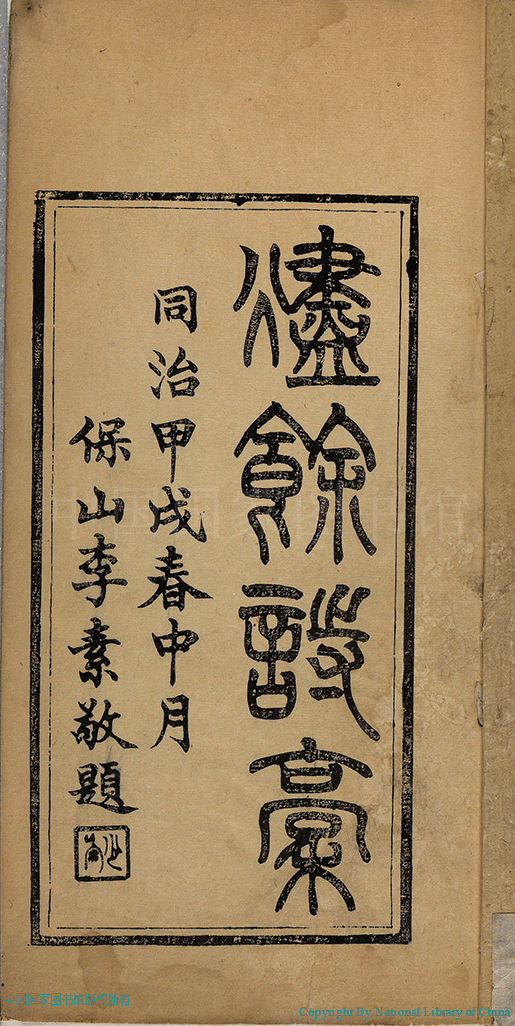 燼餘詩稾
同治甲戌春中月
保山李素敬題
Copyright By National Library of China